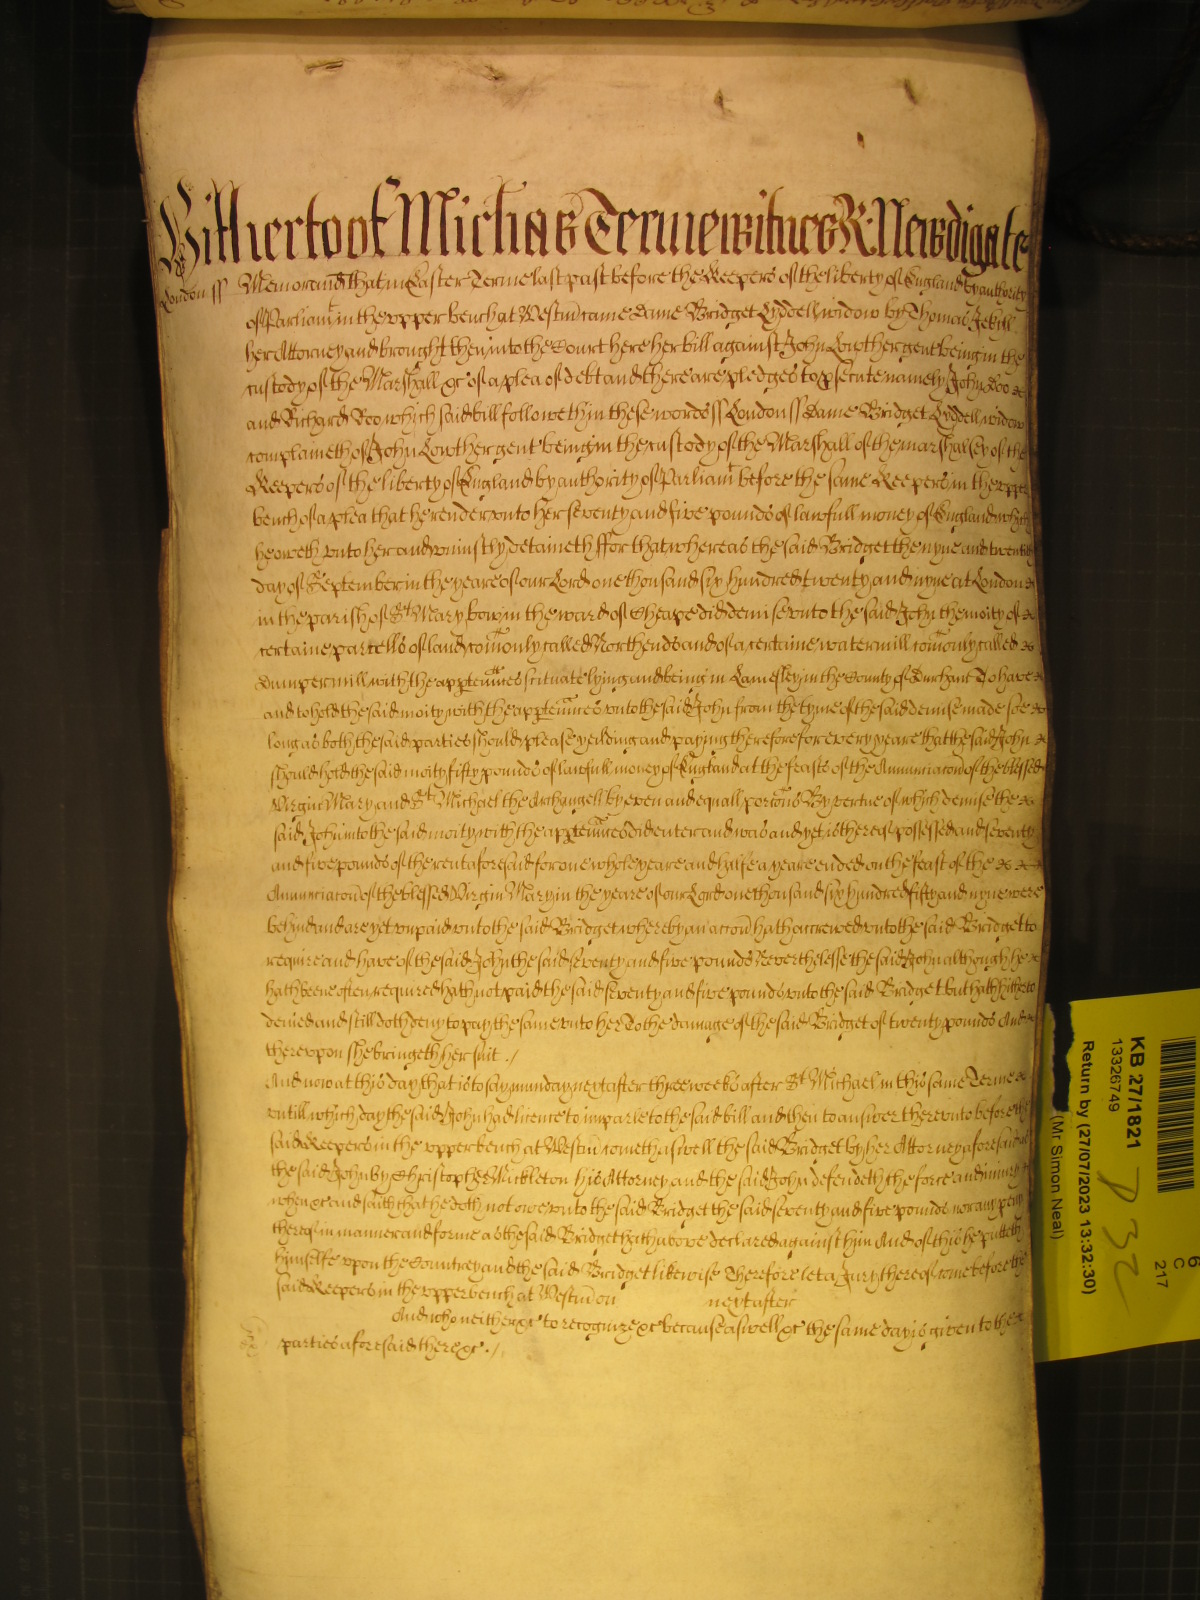 Hitherto of Michas Terme witnes R: Newdigate
London ss Memorand that in Easter Terme last past before the Keepers of the liberty of England by authority
of Parliamt in the vpper bench at Westm came Dame Bridget Lyddell widow by Thomas Jekill
her Attorney and brought then into the Court here her bill against John Lowther gent being in the
custody of the Marshall &c of a plea of debt and there are pledges to psecute namely John Doo &
and Richard Roo which said bill followeth in these words ss London ss Dame Bridget Lyddell widow
complaineth of John Lowther gent being in the custody of the Marshall of the marshalsey of the
Keepers of the liberty of England by authority of Parliamt before the same Keepers in the vpper
bench of a plea that he render vnto her seventy and five pounds of lawfull money of England which
he oweth vnto her and vniustly detaineth ffor that whereas the said Bridget the nyne and twentith
day of September in the yeare of our Lord one thousand six hundred twenty and nyne at London &
in the parish of St Mary bow in the ward of Cheape did demise vnto the said John the moity of &
certaine parcells of land comonly called Northends and of a certaine water mill comonly called &
Damper mill with the apptennces scituate lying and being in Lamesley in the County of Durham To have &
and to hold the said moity with the apptennces vnto the said John from the tyme of the said demise made soe &
long as both the said parties should please yeilding and paying therefore for every yeare that the said John &
should hold the said moity fifty pounds of lawfull money of England at the feasts of the Annunciacon of the blessed
Virgin Mary and St Michael the Archangell by even and equall porcons By vertue of which demise the &
said John into the said moity with the apptennces did enter and was and yet is thereof possessed and seventy
and five pounds of the rent aforesaid for one whole yeare and halfe a yeare ended on the feast of the & &
Annunciacon of the blessed Virgin Mary in the yeare of our Lord one thousand six hundred fifty and nyne were
behind and are yet vnpaid vnto the said Bridget whereby an accon hath accrewed vnto the said Bridget to
require and have of the said John the said seventy and five pounds Neverthelesse the said John although he &
hath beene often required hath not paid the said seventy and five pounds vnto the said Bridget but hath hitherto
denied and still doth deny to pay the same vnto her To the damage of the said Bridget of twenty pounds And &
therevpon she bringeth her suit ./
And now at this day that is to say munday next after three weeks after St Michael in this same Terme &
vntill which day the said John had licence to imparle to the said bill and then to answer therevnto before the
said Keepers in the vpper bench at Westm cometh aswell the said Bridget by her Attorney aforesaid as
the said John by Christopher Mickleton his Attorney and the said John defendeth the force and iniury
when &c and saith that he doth not owe vnto the said Bridget the said seventy and five pounds nor any peny
thereof in manner and forme as the said Bridget hath above declared against him And of this he putteth
himselfe vpon the Countrey and the said Bridget likewise Therefore let a Jury thereof come before the
said Keepers in the vpper bench at Westm on next after
And who neither &c to recognize &c because aswell &c the same day is given to the &
parties aforesaid there &c ./
KB 27/1821
13326749
Return by (27/07/2023 13:32:30)
(Mr Simon Neal)
6
C
217